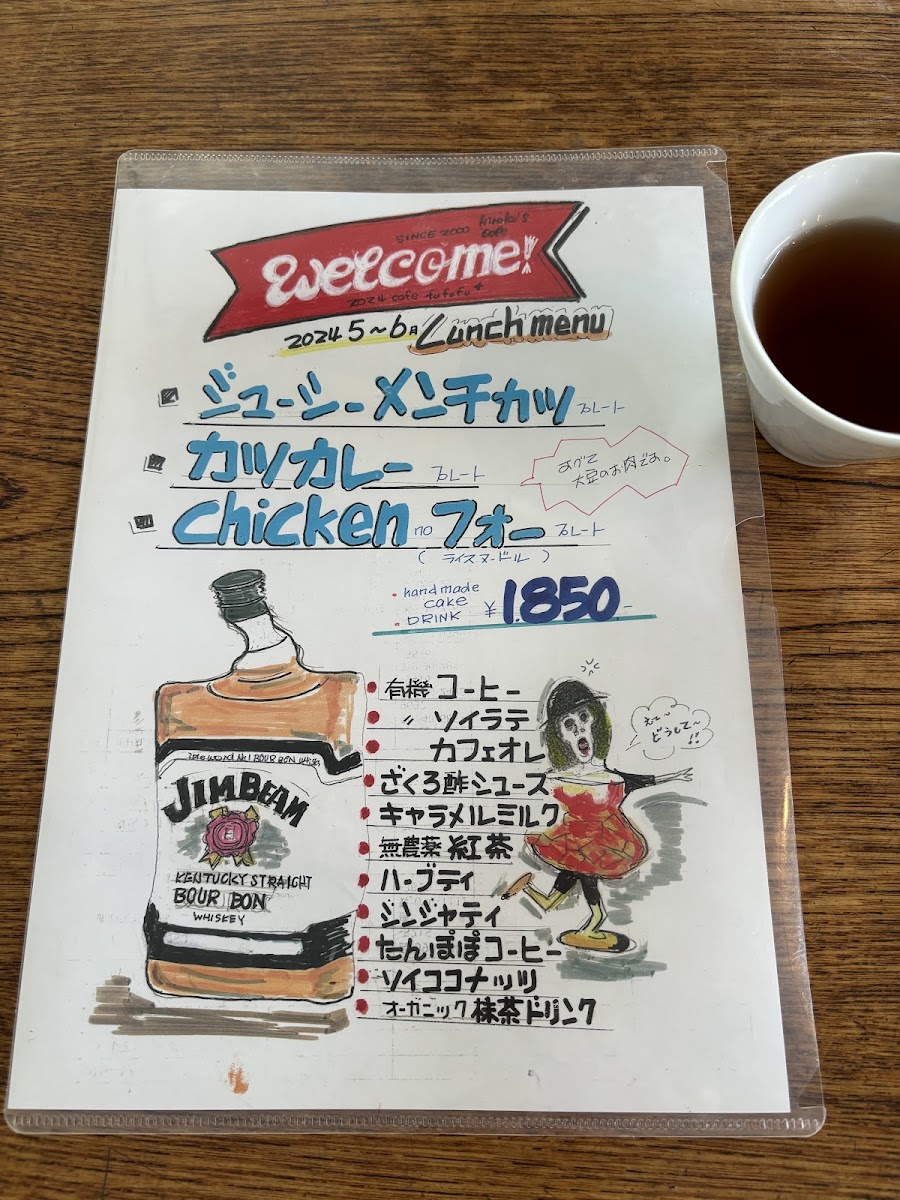 SINCE 2000 Hiroko's Cafe
Welcome!
2024 cafe fufufu
2024 5～6月 Lunch menu
ジューシーメンチカツ プレート
カツカレー プレート
すべて
大豆のお肉です。
chicken no フォー プレート
(ライスヌードル)
・handmade cake
・DRINK ¥1.850-
有機 コーヒー
〃 ソイラテ
カフェオレ
ざくろ酢ジュース
キャラメルミルク
無農薬 紅茶
ハーブティ
ジンジャティ
たんぽぽコーヒー
ソイココナッツ
オーガニック 抹茶ドリンク
えぇ〜
どうして〜
!!
BOURBON
JIM BEAM
KENTUCKY STRAIGHT
BOURBON
WHISKEY